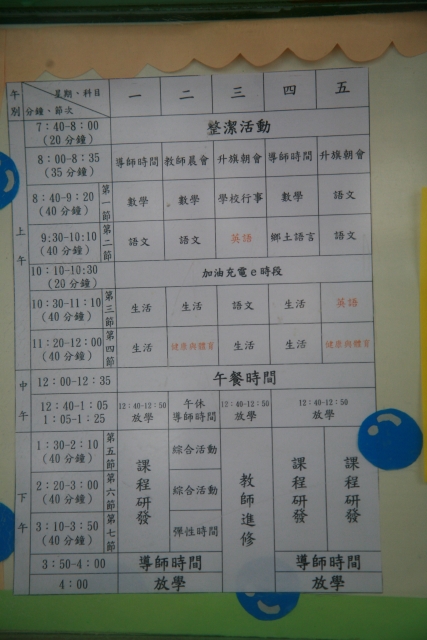 午別 星期、科目 分鐘、節次 一 二 三 四 五
7:40-8:00 (20分鐘) 整潔活動
8:00-8:35 (35分鐘) 導師時間 教師晨會 升旗朝會 導師時間 升旗朝會
上午 8:40-9:20 (40分鐘) 第一節 數學 數學 學校行事 數學 語文
9:30-10:10 (40分鐘) 第二節 語文 語文 英語 鄉土語言 語文
10:10-10:30 (20分鐘) 加油充電e時段
10:30-11:10 (40分鐘) 第三節 生活 生活 語文 生活 英語
11:20-12:00 (40分鐘) 第四節 生活 健康與體育 生活 生活 健康與體育
中午 12:00-12:35 午餐時間
12:40-1:05 1:05-1:25 12:40-12:50 放學 午休 導師時間 12:40-12:50 放學 12:40-12:50 放學
下午 1:30-2:10 (40分鐘) 第五節 課程研發 綜合活動 教師進修 課程研發 課程研發
2:20-3:00 (40分鐘) 第六節 綜合活動
3:10-3:50 (40分鐘) 第七節 彈性時間
3:50-4:00 導師時間 導師時間
4:00 放學 放學